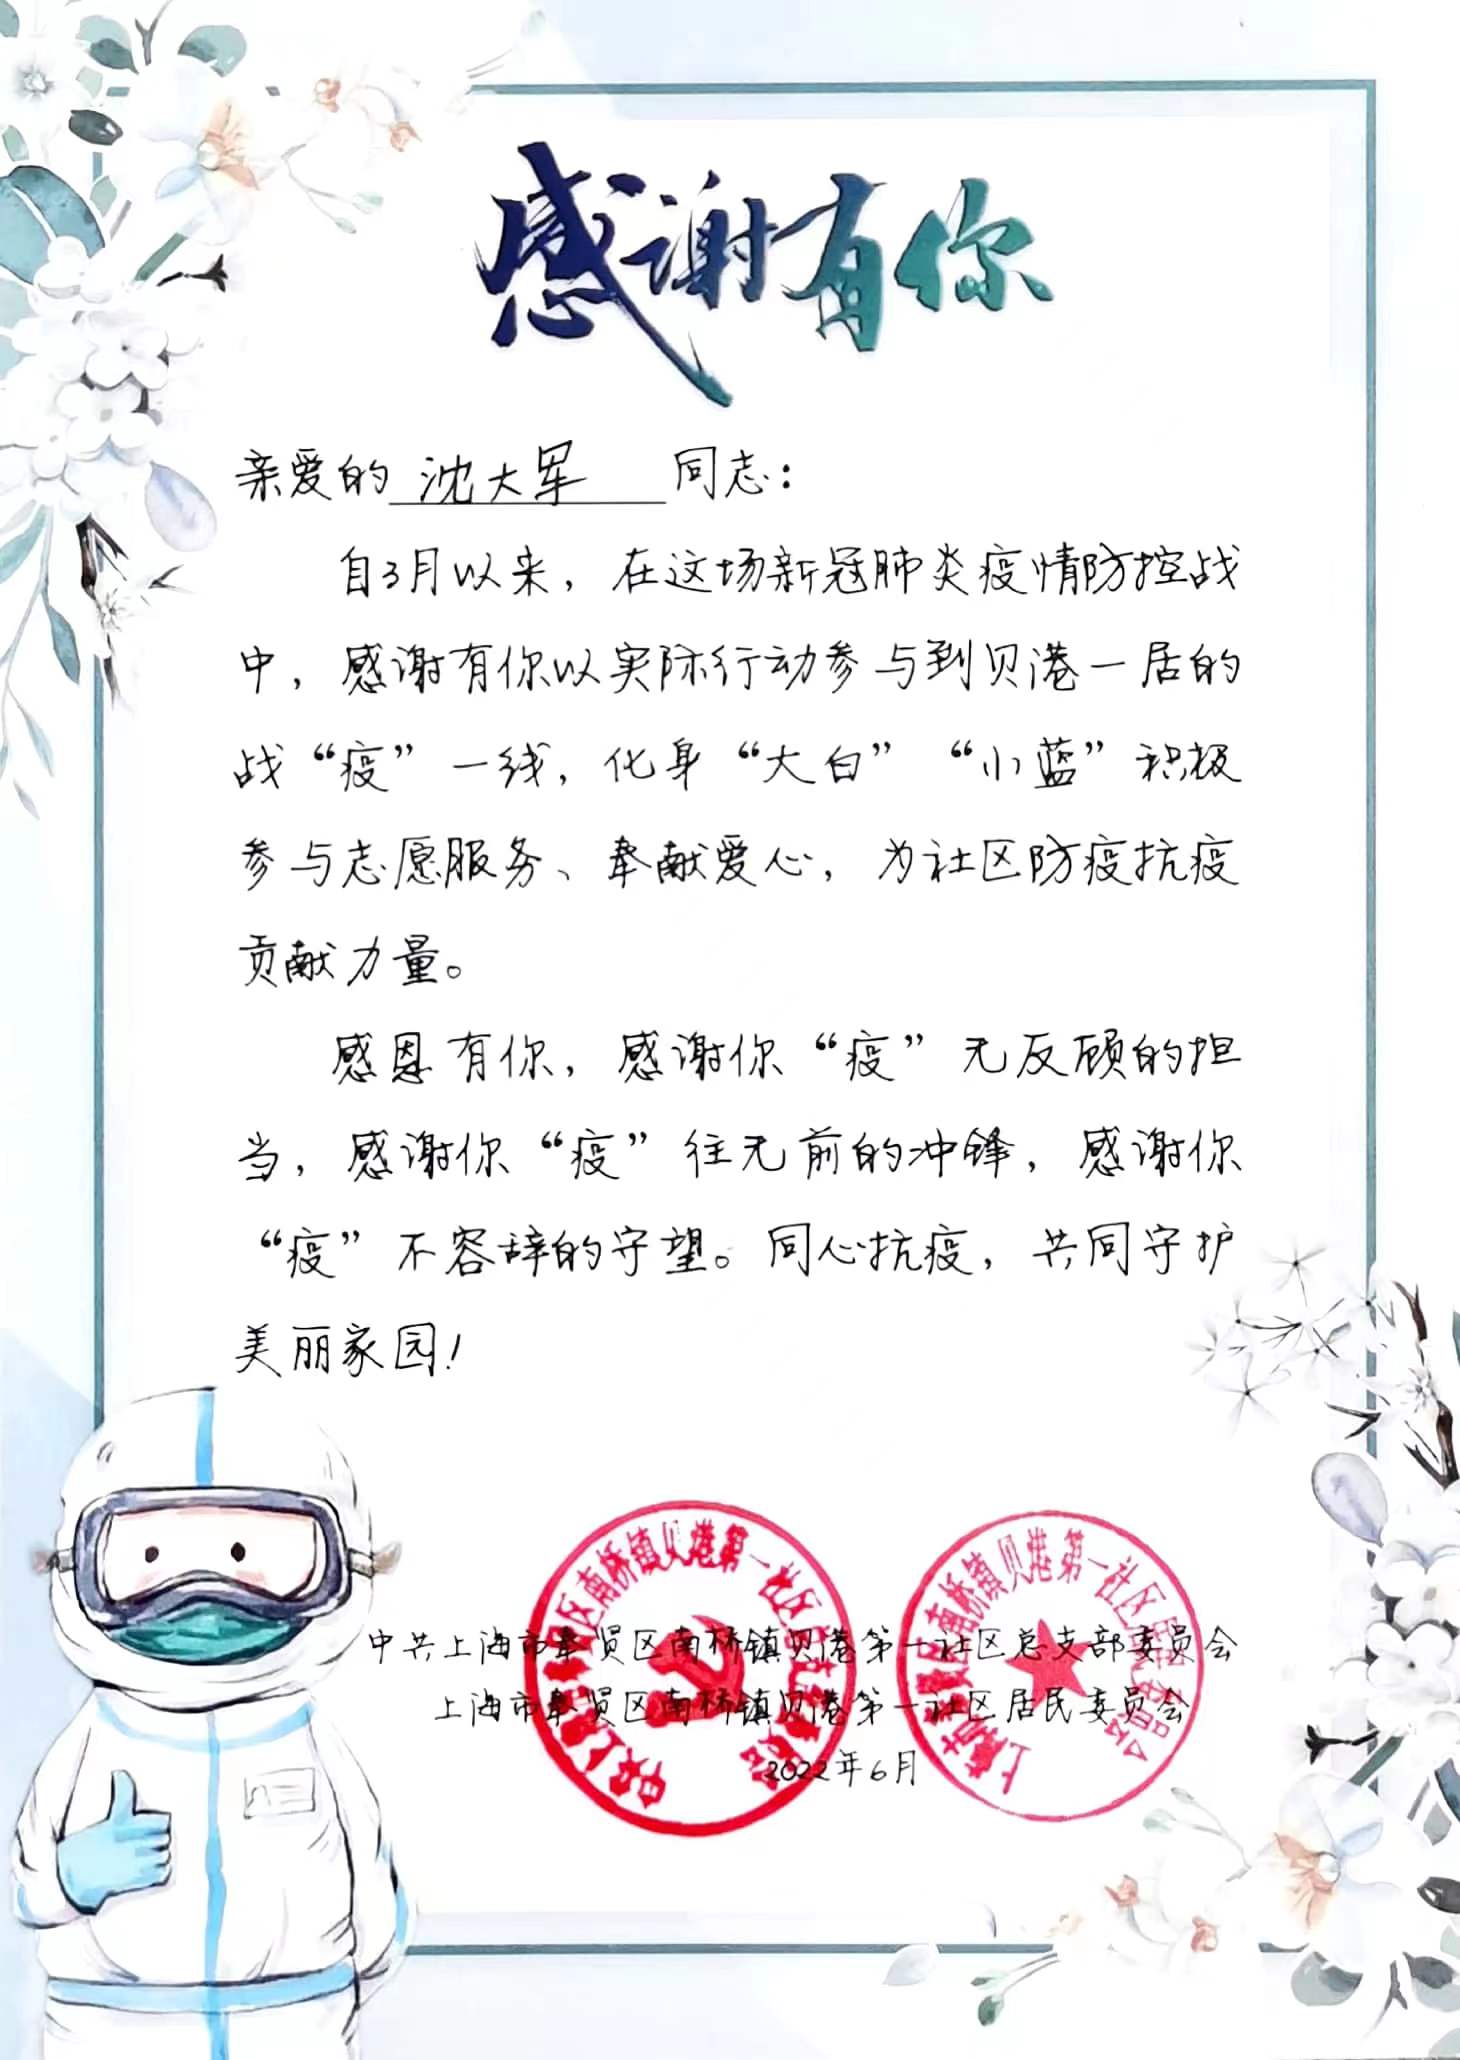 感谢有你
亲爱的 沈大军 同志：
自3月以来，在这场新冠肺炎疫情防控战
中，感谢有你以实际行动参与到贝港一居的
战“疫”一线，化身“大白”“小蓝”积极
参与志愿服务、奉献爱心，为社区防疫抗疫
贡献力量。
感恩有你，感谢你“疫”无反顾的担
当，感谢你“疫”往无前的冲锋，感谢你
“疫”不容辞的守望。同心抗疫，共同守护
美丽家园！
中共上海市奉贤区南桥镇贝港第一社区总支部委员会
上海市奉贤区南桥镇贝港第一社区居民委员会
2022年6月